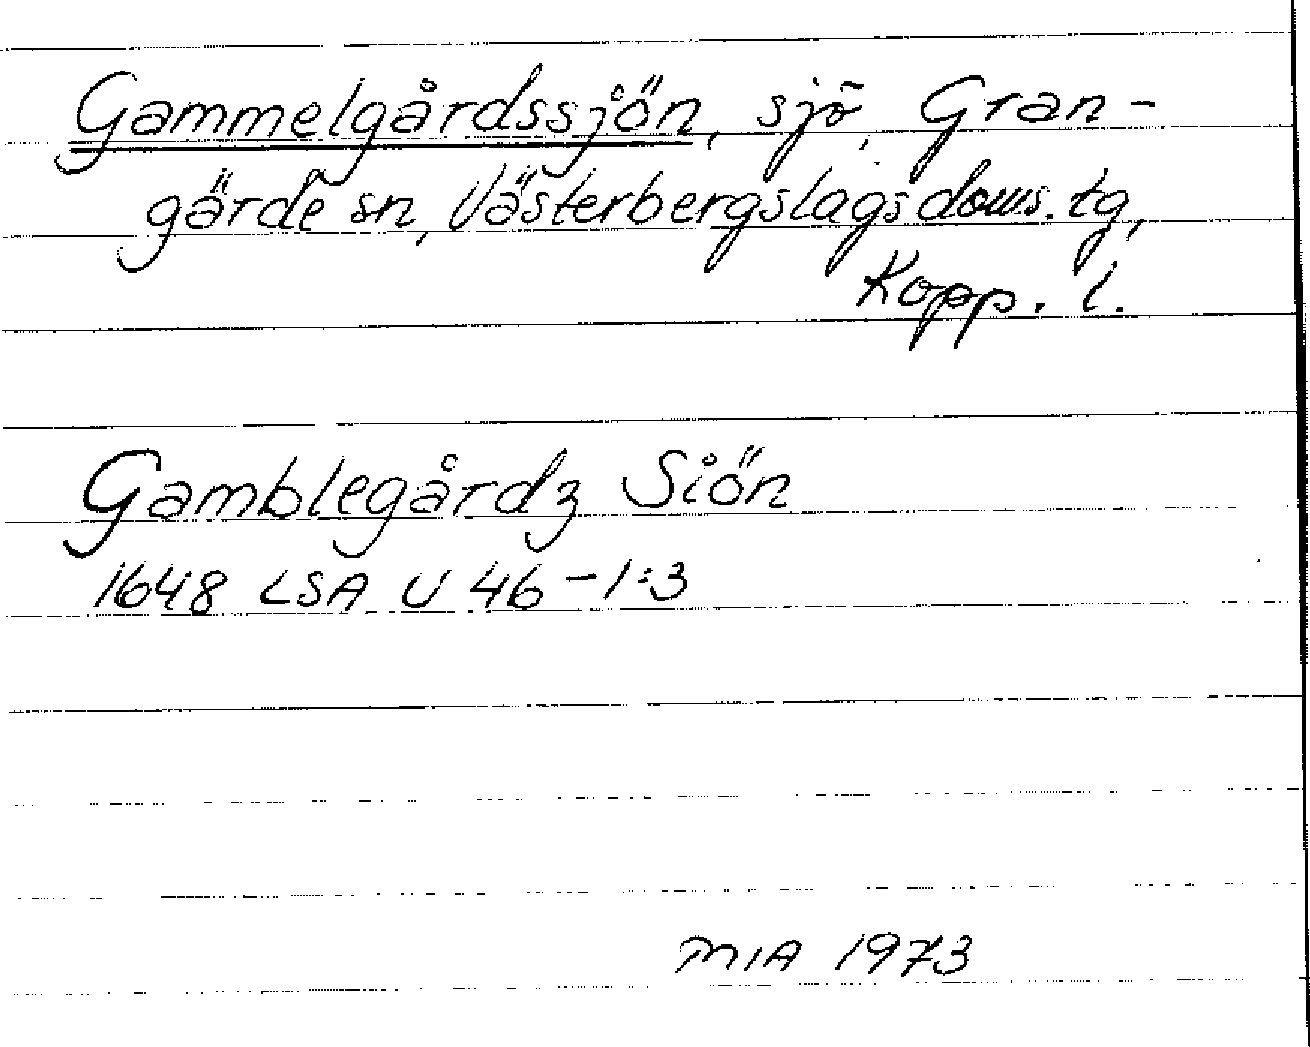 Gammelgårdssjön, sjö, Gran-
gärde sn, Västerbergslags doms. tg,
Kopp. l.
Gamblegårdz Siön
1648 LSA U 46-1:3
MIA 1973